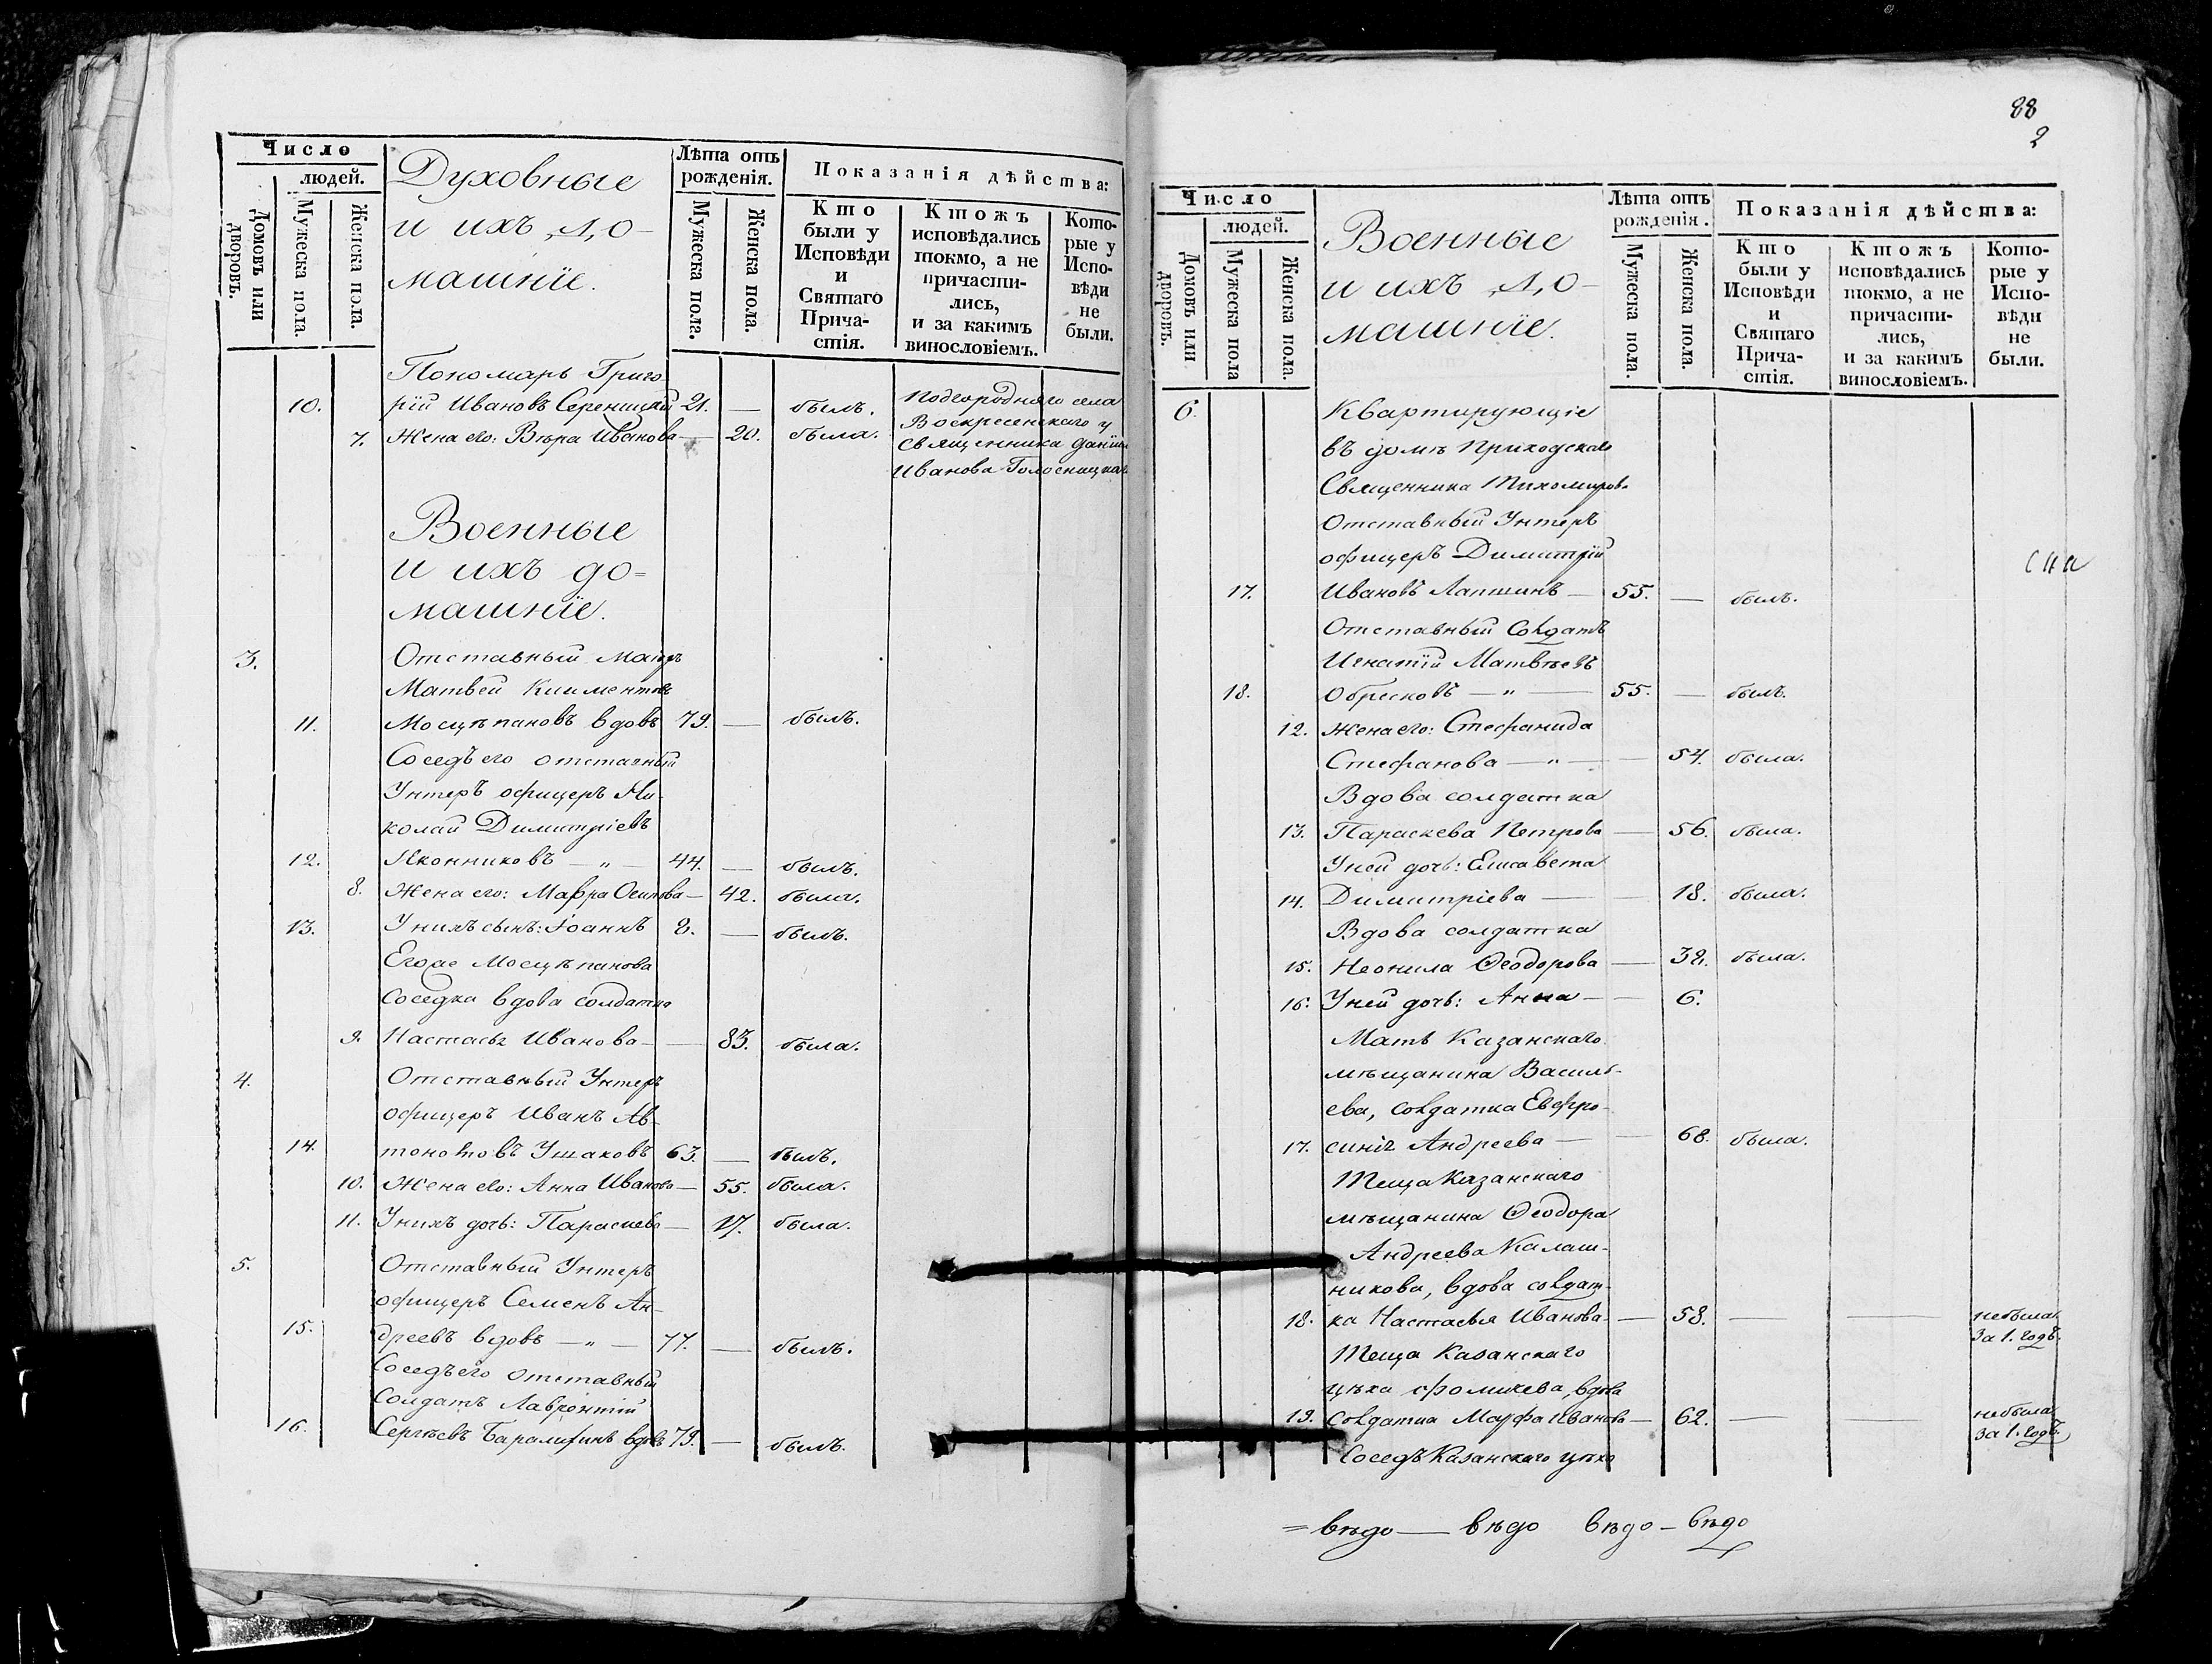 Число
людей.
Домовъ или дворовъ.
Мужеска пола.
Женска пола.
Духовные
и ихъ до-
машніе.
Лѣта отъ рожденія.
Мужеска пола.
Женска пола.
Показанія дѣйства:
Кто были у Исповѣди и Святаго Причастія.
Ктожъ исповѣдались токмо, а не причасти-лись, и за какимъ винословіемъ.
Кото-рые у Испо-вѣди не были.
Пономарь Григо-
10. рій Ивановъ Сереницкій 21. — былъ.
7. Жена его: Вѣра Иванова — 20. была.
Подгороднаго села
Воскресенскаго у
Священника Даніи
Иванова
Военные
и ихъ до=
машніе.
3. Отставный Маіоръ
Матвей Климентовъ
11. Мосцѣпановъ вдовъ 79. — былъ.
Соседъ его отставный
Унтеръ офицеръ Ни-
колай Димитріевъ
12. Иконниковъ — „ — 44. — былъ.
8. Жена его: Мавра Осипова — 42. была.
13. У нихъ сынъ: Іоаннъ 8. — былъ.
Егоже Мосцѣпанова
соседка вдова солдатка
9. Настасья Иванова — 83. была.
4. Отставный Унтеръ
офицеръ Иванъ Ав-
14. тономовъ Ушаковъ 63. — былъ.
10. Жена его: Анна Иванова — 55. была.
11. У нихъ дочь: Параскева — 17. была.
5. Отставный Унтеръ
офицеръ Семенъ Ан-
15. дреевъ вдовъ — „ — 77. — былъ.
Соседъ его отставный
Солдатъ Лаврентій
16. Сергѣевъ вдовъ 79. — былъ.
88
2
Число
людей.
Домовъ или дворовъ.
Мужеска пола
Женска пола.
Военные
и ихъ до-
машніе.
Лѣта отъ рожденія.
Мужеска пола.
Женска пола.
Показанія дѣйства:
Кто были у Исповѣди и Святаго Прича-стія.
Ктожъ исповѣдались токмо, а не причасти-лись, и за какимъ винословіемъ.
Кото-рые у Испо-вѣди не были.
6. Квартирующіе
въ домѣ Приходскаго
Священника Тихомирова
Отставный Унтеръ
офицеръ Димитрій
17. Ивановъ Лаптинъ — 55. — былъ.
Отставный Солдатъ
Игнатій Матвѣевъ
18. Обресковъ — „ — 55. — былъ.
12. Жена его: Стефанида
Стефанова — „ — 54. была.
Вдова солдатка
13. Параскева Петрова — 56. была.
У ней дочь: Елисавета
14. Димитріева — 18. была.
Вдова солдатка
15. Неонила Ѳеодорова — 32. была.
16. У ней дочь: Анна — 6.
Мать Казанскаго
мѣщанина Василь-
ева, солдатка Евфро-
17. синія Андреева — 68. была.
Теща Казанскаго
мѣщанина Ѳеодора
Андреева Калаш-
никова, вдова солдат-
18. ка Настасья Иванова — 58. — — небыла
за 1. годъ.
Теща Казанскаго
цѣха вдова
19. Солдатка Марфа Иванова — 62. — — небыла
за 1. годъ.
Соседъ Казанскаго цѣха
= вѣдо — вѣдо вѣдо — вѣдо